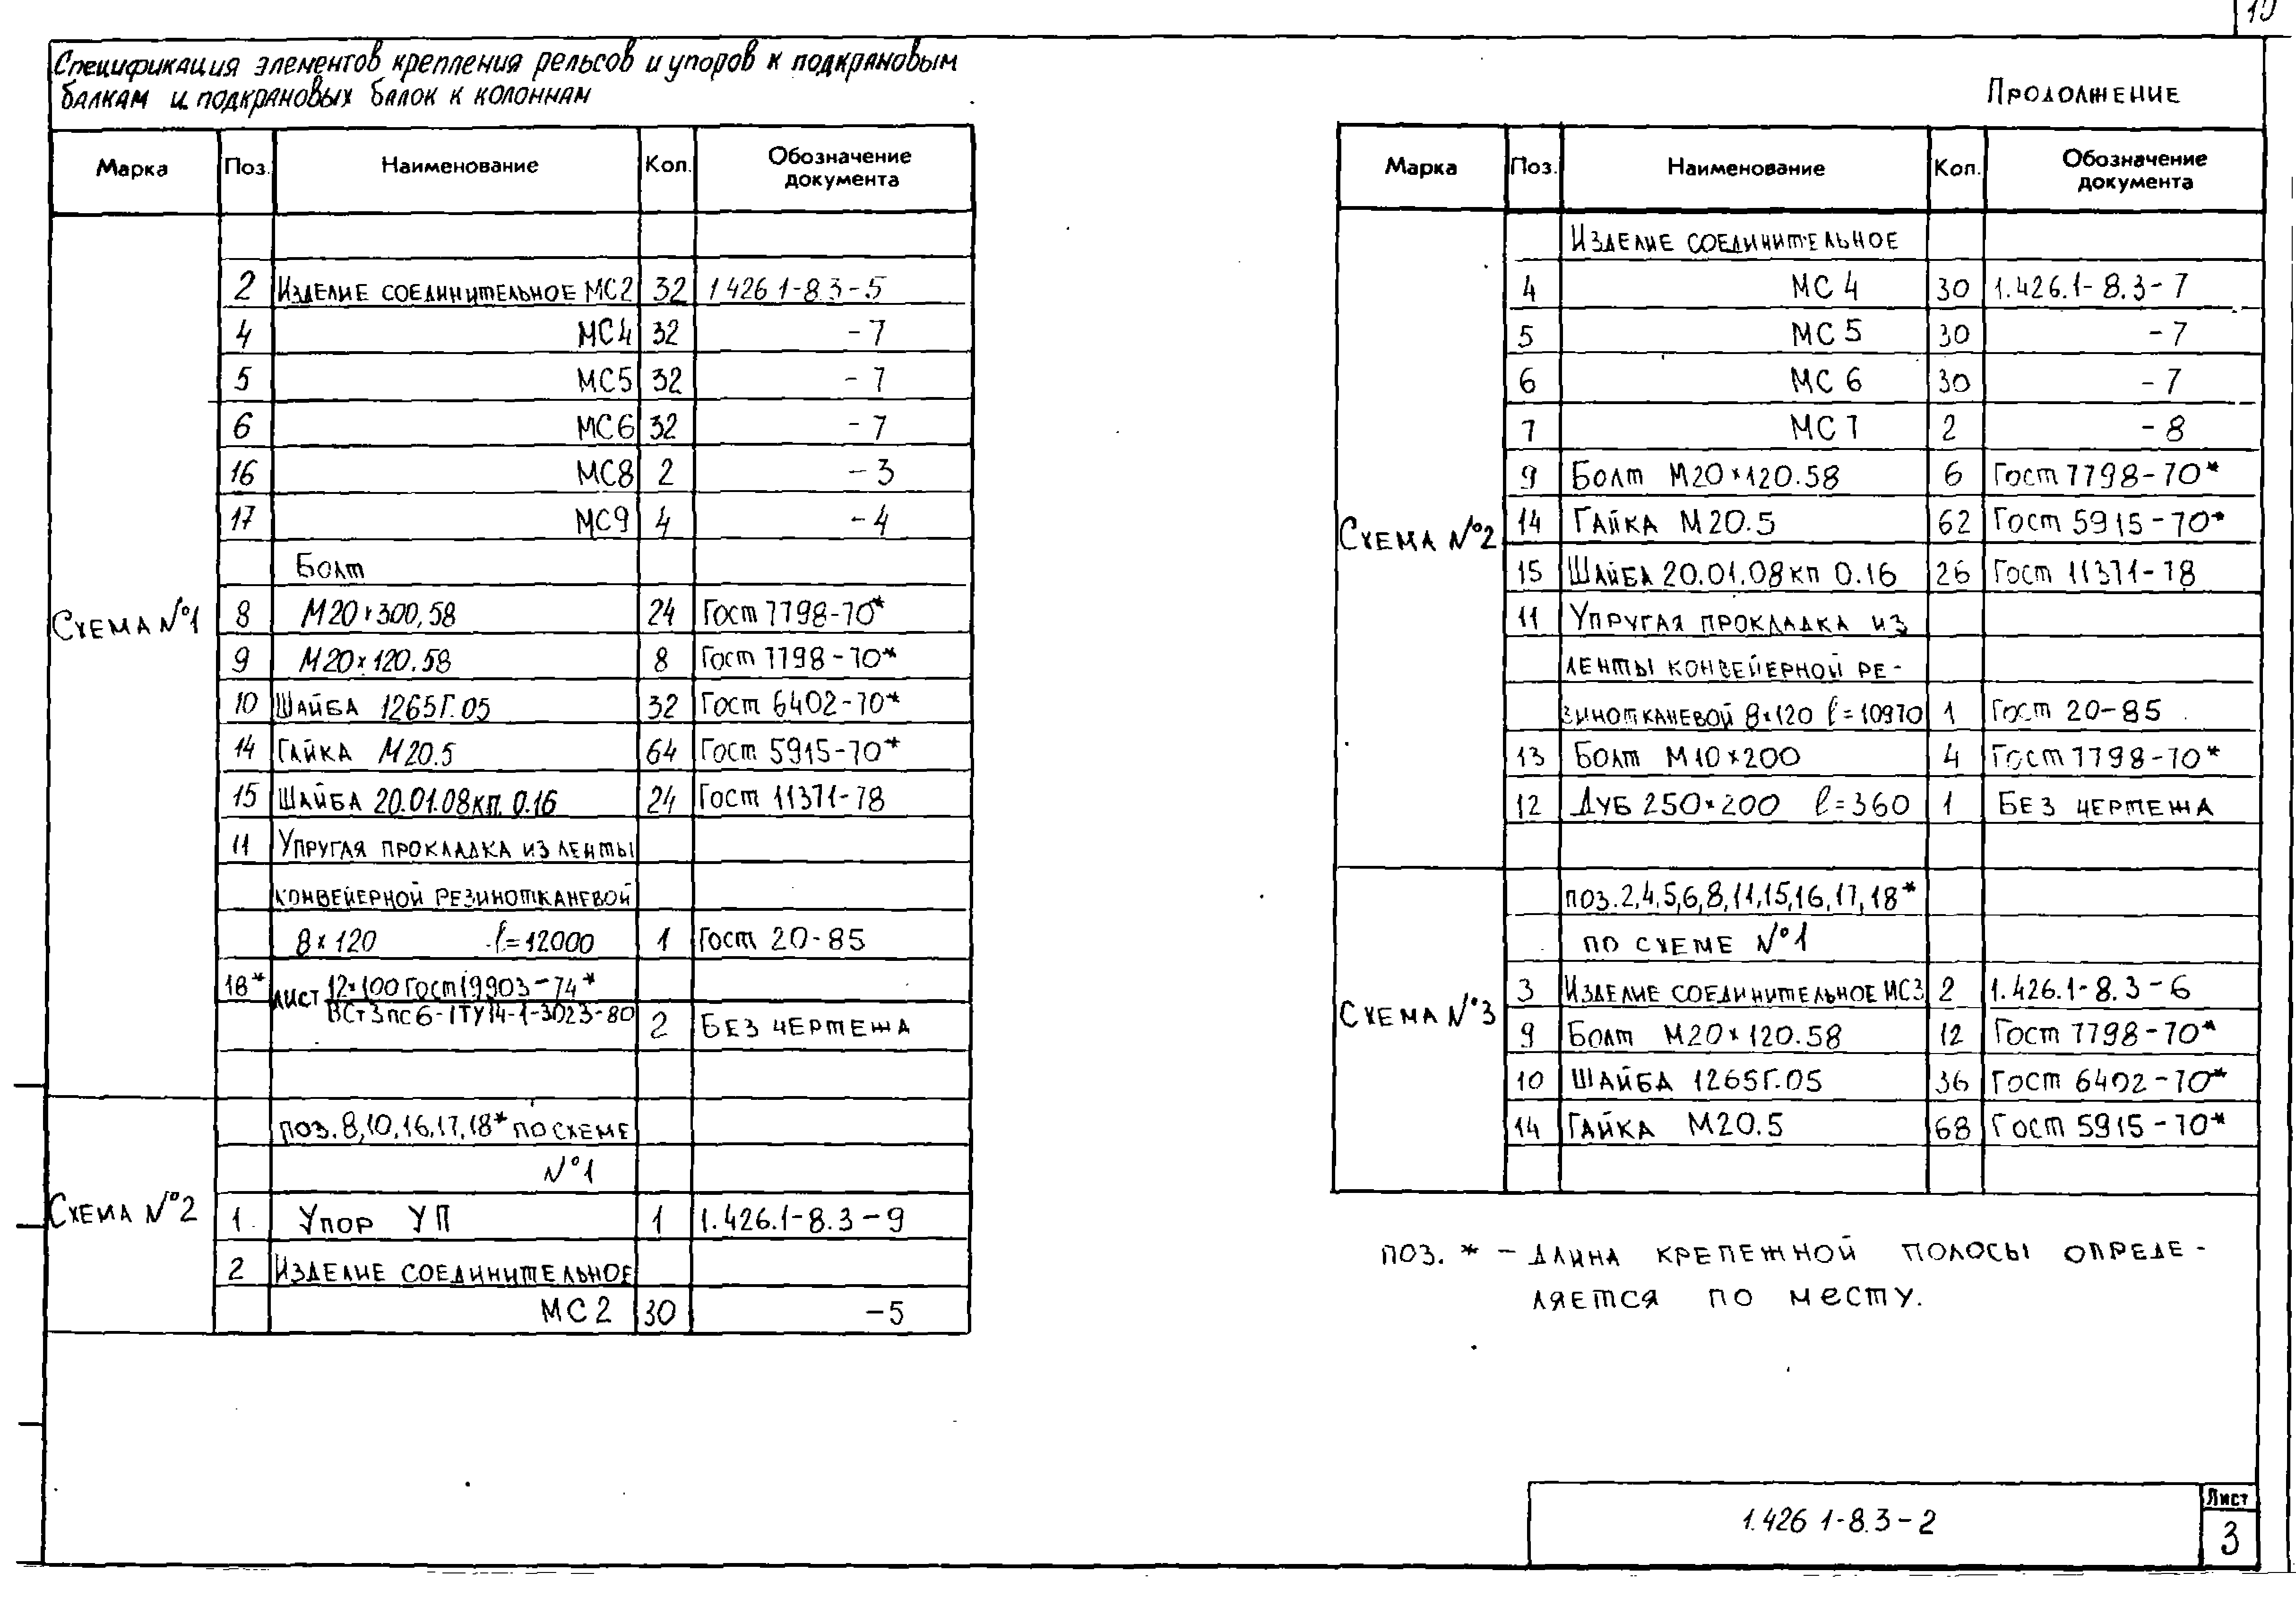 10
Спецификация элементов крепления рельсов и упоров к подкрановым
балкам и подкрановых балок к колоннам
Марка Поз. Наименование Кол. Обозначение документа
Схема №1
2 Изделие соединительное МС2 32 1.426.1-8.3-5
4 МС4 32 -7
5 МС5 32 -7
6 МС6 32 -7
16 МС8 2 -3
17 МС9 4 -4
Болт
8 М20×300,58 24 Гост 7798-70*
9 М20×120.58 8 Гост 7798-70*
10 Шайба 1265Г.05 32 Гост 6402-70*
14 Гайка М20.5 64 Гост 5915-70*
15 Шайба 20.01.08кп. 0.16 24 Гост 11371-78
11 Упругая прокладка из ленты
конвейерной резинотканевой
8×120 l=12000 1 Гост 20-85
18* Лист 12×100 Гост 19903-74*
ВСт3пс6-1ТУ14-1-3023-80 2 Без чертежа
Схема №2
поз. 8,10,16,17,18* по схеме
№1
1 Упор УП 1 1.426.1-8.3-9
2 Изделие соединительное
МС2 30 -5
Продолжение
Марка Поз. Наименование Кол. Обозначение документа
Схема №2
Изделие соединительное
4 МС4 30 1.426.1-8.3-7
5 МС5 30 -7
6 МС6 30 -7
7 МС7 2 -8
9 Болт М20×120.58 6 Гост 7798-70*
14 Гайка М20.5 62 Гост 5915-70*
15 Шайба 20.01.08кп 0.16 26 Гост 11371-78
11 Упругая прокладка из
ленты конвейерной ре-
зинотканевой 8×120 l=10970 1 Гост 20-85
13 Болт М10×200 4 Гост 7798-70*
12 Дуб 250×200 l=360 1 Без чертежа
Схема №3
поз. 2,4,5,6,8,11,15,16,17,18*
по схеме №1
3 Изделие соединительное МС3 2 1.426.1-8.3-6
9 Болт М20×120.58 12 Гост 7798-70*
10 Шайба 1265Г.05 36 Гост 6402-70*
14 Гайка М20.5 68 Гост 5915-70*
поз. * - длина крепежной полосы опреде-
ляется по месту.
1.426 1-8.3-2
Лист
3